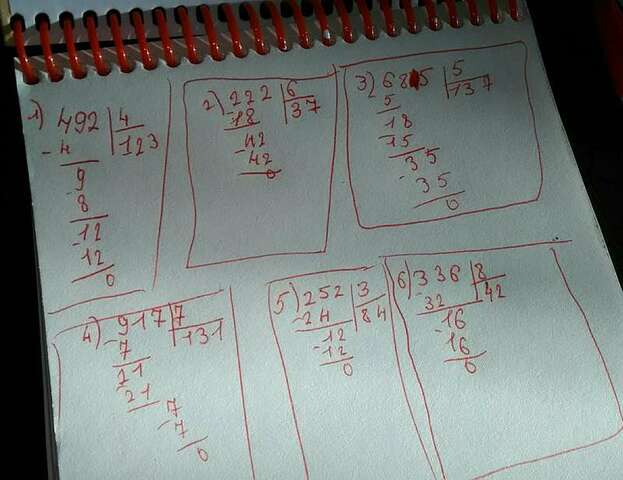 1) 492 | 4
- 4 | 123
9
- 8
12
- 12
0
2) 222 | 6
- 18 | 37
42
- 42
0
3) 685 | 5
5 | 137
18
- 15
35
- 35
0
4) 917 | 7
- 7 | 131
21
21
7
- 7
0
5) 252 | 3
- 24 | 84
12
- 12
0
6) 336 | 8
- 32 | 42
16
- 16
0